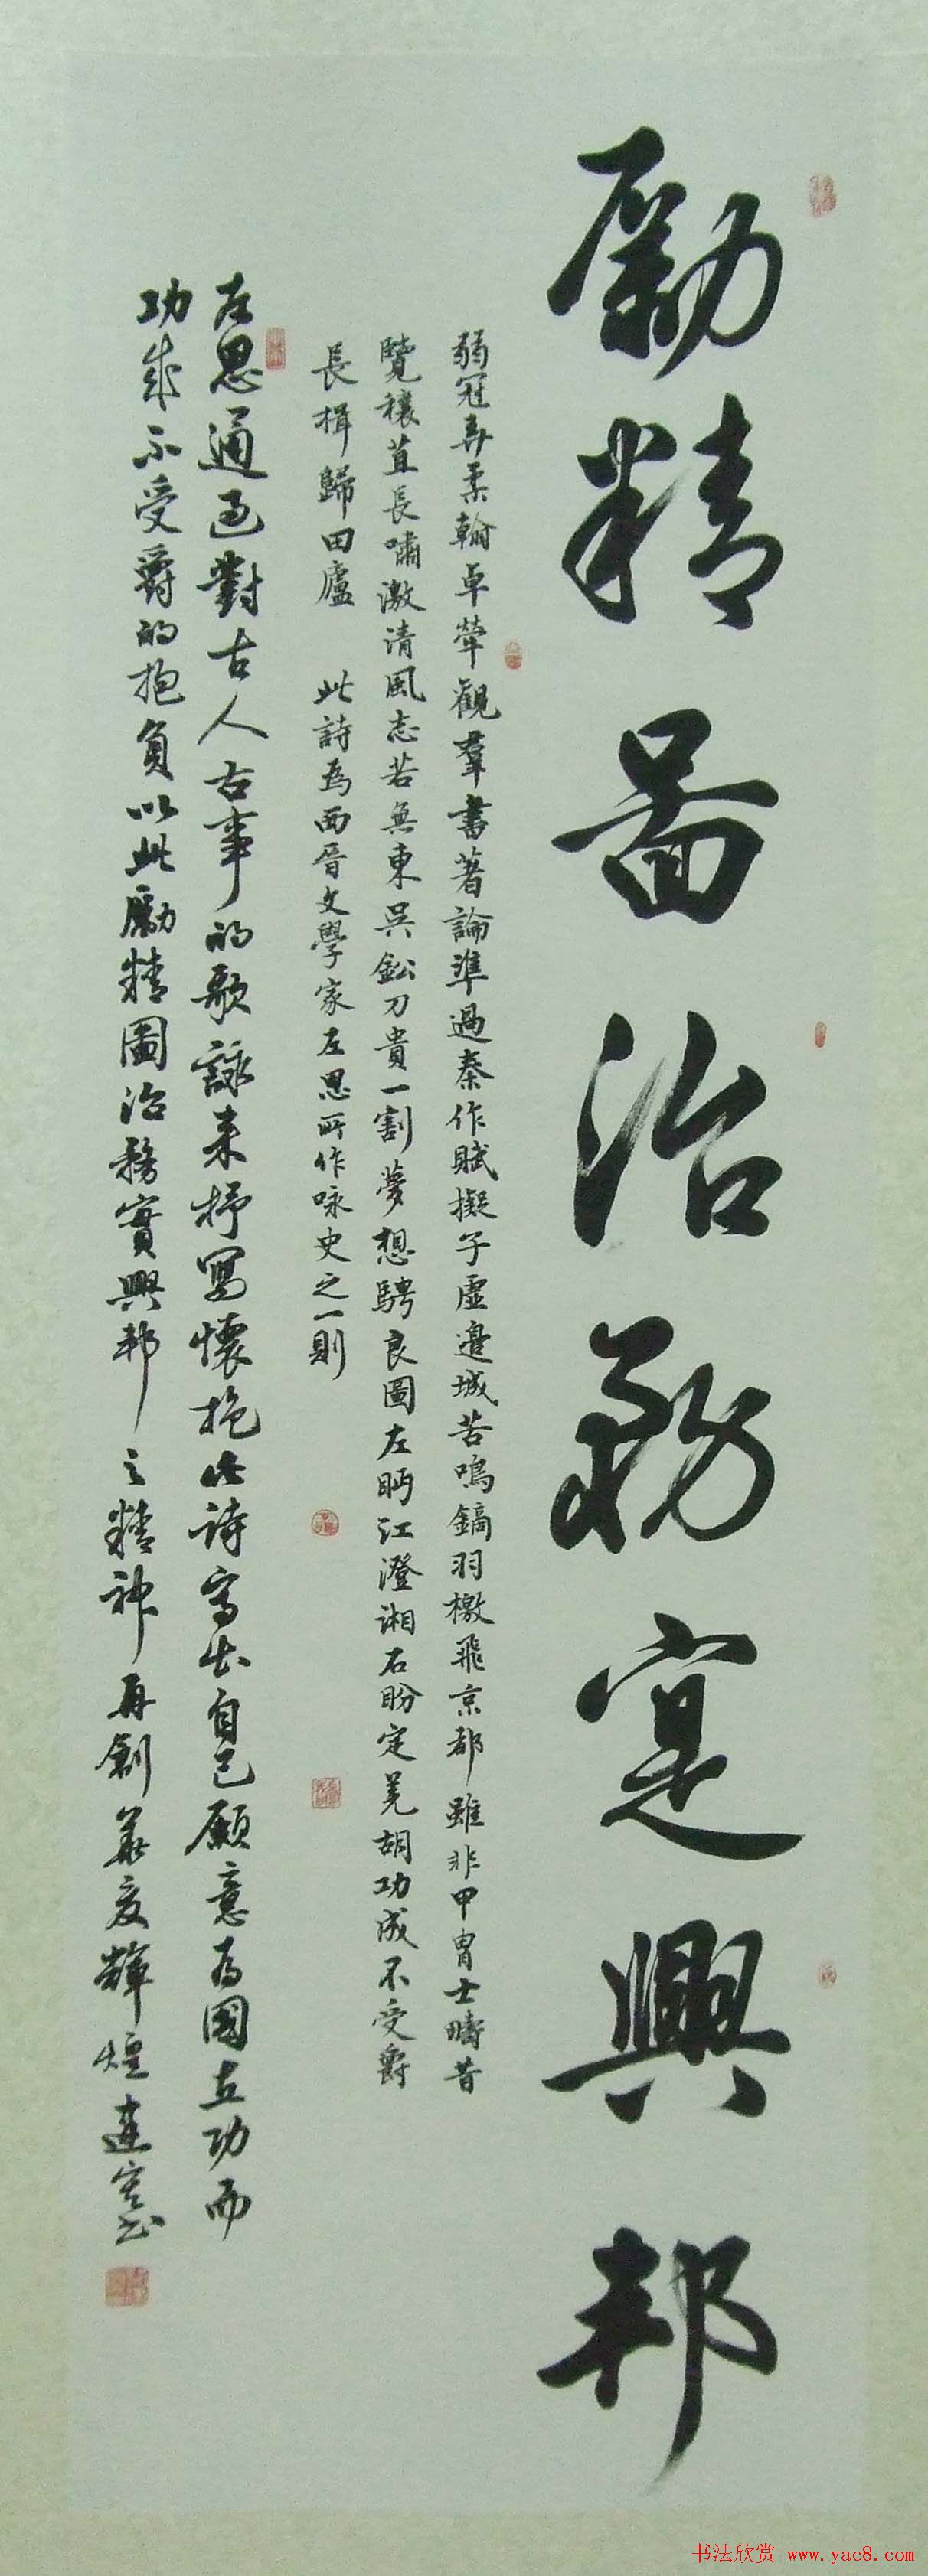 勵精圖治務寔興邦
弱冠弄柔翰卓犖觀羣書著論準過秦作賦擬子虛邊城苦鳴鏑羽檄飛京都雖非甲冑士疇昔
覽穰苴長嘯激清風志若無東吳鈆刀貴一割夢想騁良圖左眄江澄湘右盼定羌胡功成不受爵
長揖歸田廬 此詩爲西晉文學家左思所作咏史之一則
左思通過對古人古事的歌詠来抒寫懷抱此詩寫出自己願意为國立功而
功成不受爵的抱負以此勵精圖治務實興邦之精神再創華夏輝煌建宏书
书法欣赏 www.yac8.com